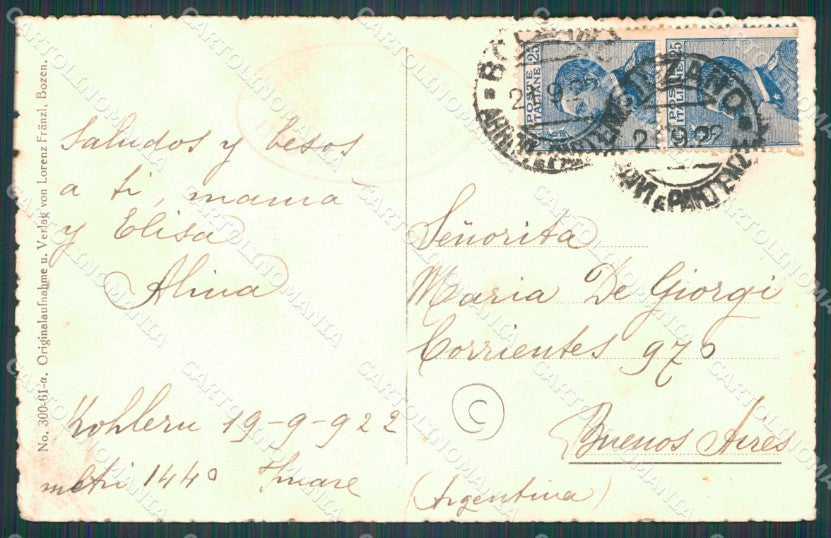 No. 300-61-a. Originalaufnahme u. Verlag von Lorenz Fränzl, Bozen.
Saludos y besos
a ti, mamá
y Elisa
Alina
Kohlern 19-9-922
metri 1440
POSTE ITALIANE 25
POSTE ITALIANE 25
BOLZANO
ARRIVI & PARTENZE
Señorita
Maria De Giorgi
Corrientes 970
Buenos Aires
(Argentina)
C
CARTOLINOMANIA